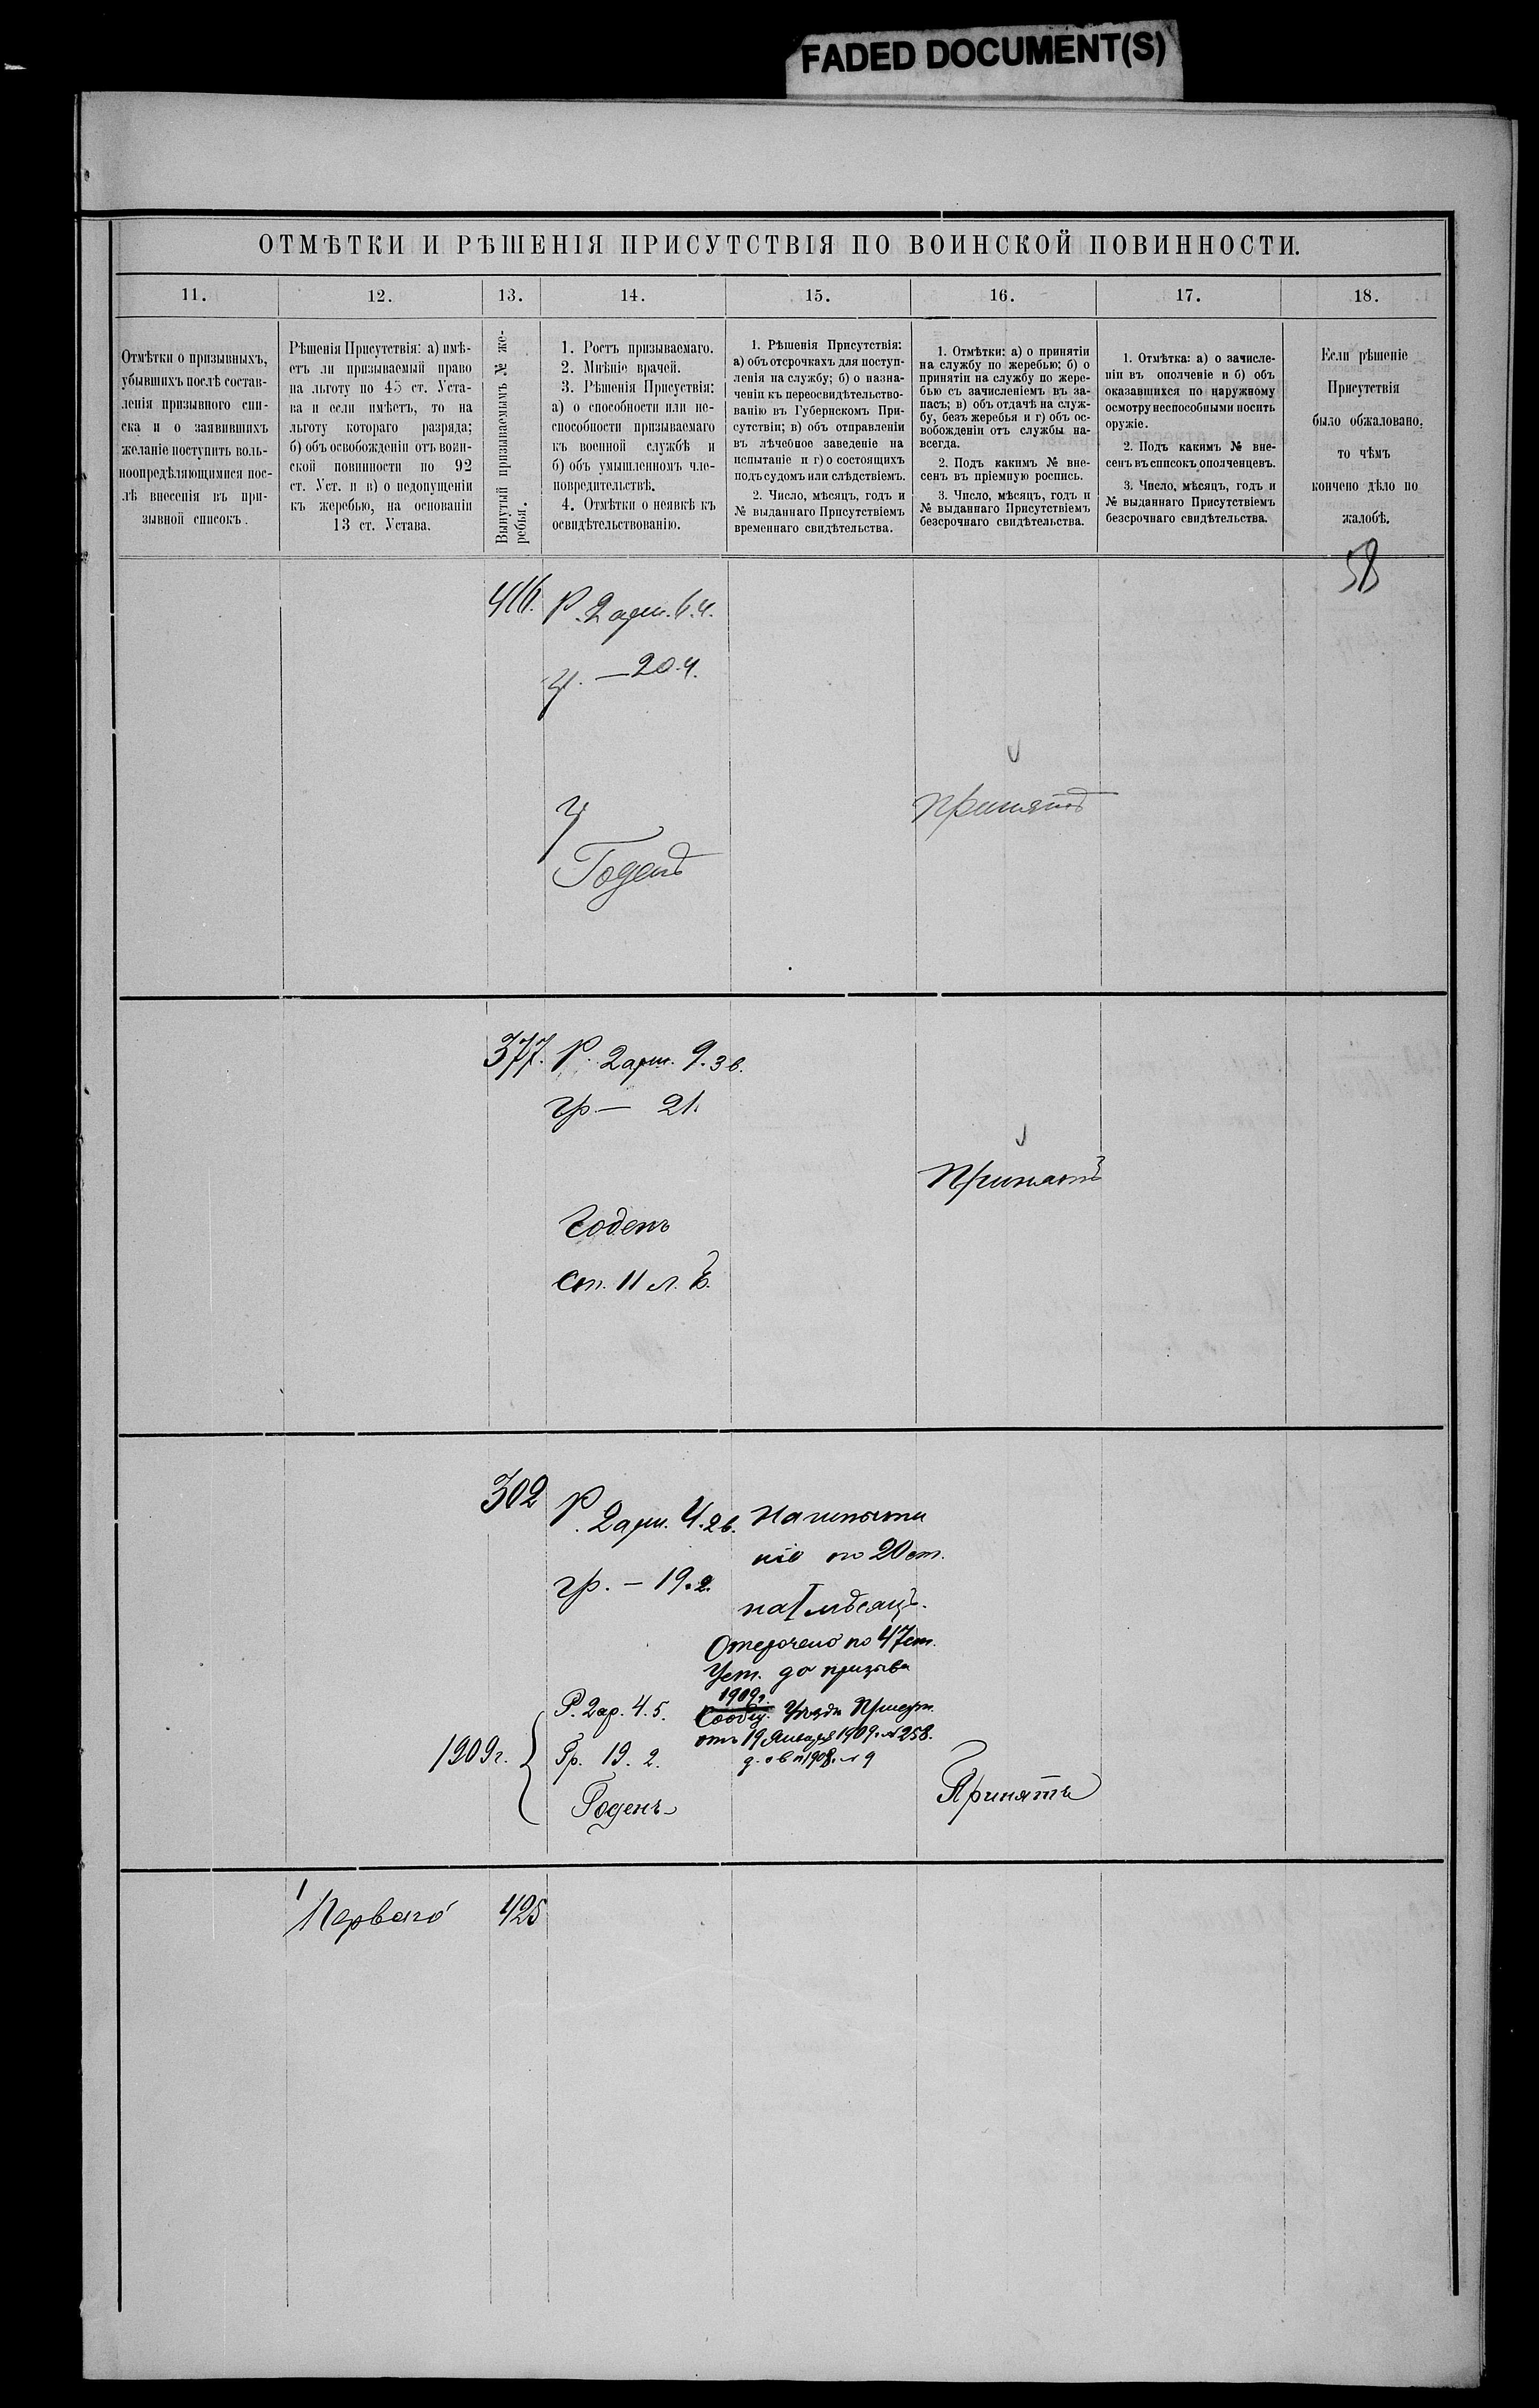 FADED DOCUMENT(S)
ОТМѢТКИ И РѢШЕНІЯ ПРИСУТСТВІЯ ПО ВОИНСКОЙ ПОВИННОСТИ.
11.
12.
13.
14.
15.
16.
17.
18.
Отмѣтки о призывныхъ,
убывшихъ послѣ состав-
ленія призывного спи-
ска и о заявившихъ
желаніе поступить воль-
ноопредѣляющимися пос-
лѣ внесенія въ при-
зывной списокъ.
Рѣшенія Присутствія: а) имѣ-
етъ ли призываемый право
на льготу по 45 ст. Уста-
ва и если имѣетъ, то на
льготу котораго разряда;
б) объ освобожденіи отъ воин-
ской повинности по 92
ст. Уст. и в) о недопущеніи
къ жеребью, на основаніи
13 ст. Устава.
Вынутый призываемымъ № же-
ребья.
1. Ростъ призываемаго.
2. Мнѣніе врачей.
3. Рѣшенія Присуствія:
а) о способности или не-
способности призываемаго
къ военной службѣ и
б) объ умышленномъ чле-
новредительствѣ.
4. Отмѣтки о неявкѣ къ
освидѣтельствованію.
1. Рѣшенія Присутствія:
а) объ отсрочкахъ для поступ-
ленія на службу; б) о назна-
ченіи къ переосвидѣтельство-
ванію въ Губернскомъ При-
сутствіи; в) объ отправленіи
въ лѣчебное заведеніе на
испытаніе и г) о состоящихъ
подъ судомъ или слѣдствіемъ.
2. Число, мѣсяцъ, годъ и
№ выданнаго Присутствіемъ
временнаго свидѣтельства.
1. Отмѣтки: а) о принятіи
на службу по жеребью; б) о
принятіи на службу по жере-
бью съ зачисленіемъ въ за-
пасъ; в) объ отдачѣ на служ-
бу, безъ жеребья и г) объ ос-
вобожденіи отъ службы на-
всегда.
2. Подъ какимъ № вне-
сенъ въ пріемную роспись.
3. Число, мѣсяцъ, годъ и
№ выданнаго Присутствіемъ
безсрочнаго свидѣтельства.
1. Отмѣтка: а) о зачисле-
ніи въ ополченіе и б) объ
оказавшихся по наружному
осмотру неспособными носить
оружіе.
2. Подъ какимъ № вне-
сенъ въ списокъ ополченцевъ.
3. Число, мѣсяцъ, годъ и
№ выданнаго Присутствіемъ
безсрочнаго свидѣтельства.
Если рѣшеніе
Присутствія
было обжаловано,
то чѣмъ
кончено дѣло по
жалобѣ.
58
416. Р. 2 арш. 6.4.
— 20.4.
Принятъ
Годенъ
377. Р. 2 арш. 9.3 в.
гр — 21.
Принятъ
Годенъ
Ст. 11 л. В.
302 Р. 2 арш. 4.2 в.
На испыта
ніе по 20 ст.
гр. — 19.2.
на 1 мѣсяцъ.
Отсрочено по 47 ст.
Уст. до призыва
1909 г.
Сообщ. Уѣздн Присут.
отъ 19 Января 1909 г. № 258.
1909 г.
Р. 2 ар. 4.5.
Гр. 19.2.
Годенъ
Принятъ
1
Перваго
425